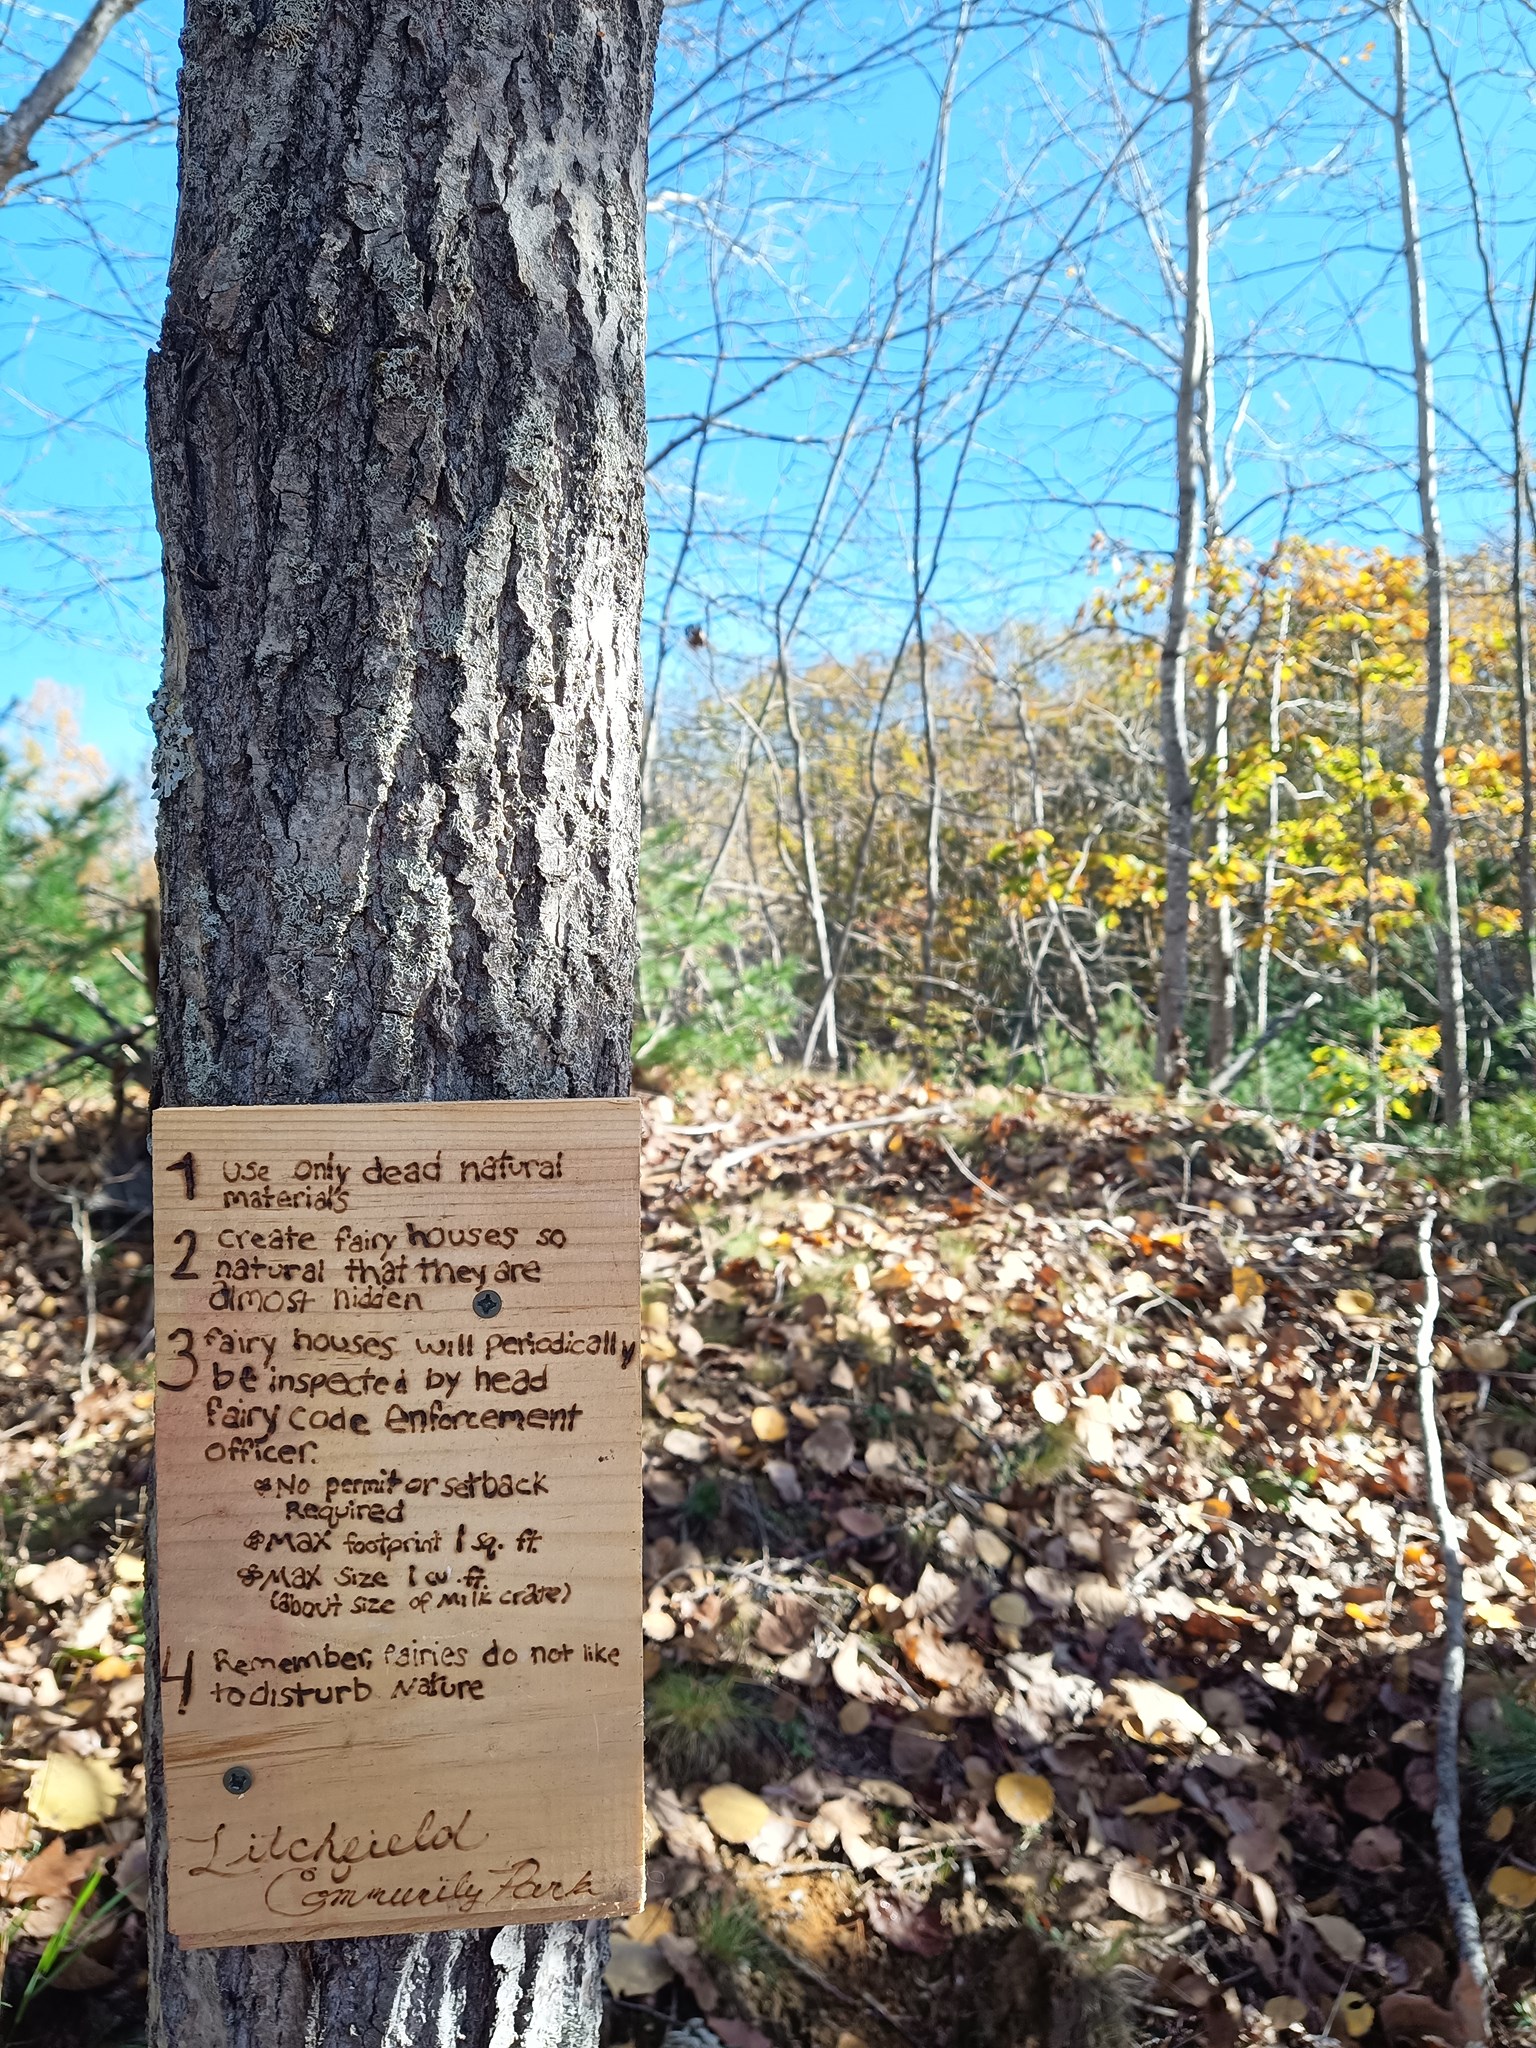 1 use only dead natural
materials
2 create fairy houses so
natural that they are
almost hidden
3 fairy houses will periodically
be inspected by head
fairy code enforcement
officer.
* No permit or setback
Required
* Max footprint 1 sq. ft.
* Max size 1 cu. ft.
(about size of milk crate)
4 Remember, fairies do not like
to disturb Nature
Litchfield
Community Park